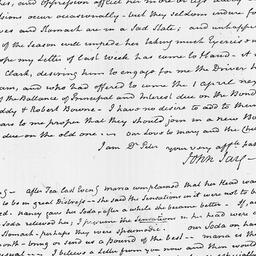 her, and oppression affect her more or less
sions occur occasionally - but they seldom indeed
ves and Stomach are in a Sad State; and unhappi
of the Season will impede her taking much Exercise
ope my Letter of last Week has come to Hand. A
Clark, desiring him to engage for me the Driver
arm, and who had offered to come the 1 April next
of the Ballance of Principal and Interest due on the Bond
ddy & Robert Bowne - I have no desire to add to them
ears to me proper that they should join in a new Bo
due on the old one - our Love to Maria and the Chi
I am Dr Peter your very affte Fath
John Jay -
after Tea last Eveng mama complained that her Head was
to be in great Distress - she said the Sensations in it were not to b
ed. Nancy gave her Soda, after a while she became better - If, as
Soda relieved her, I presume the sensations in her head were
Stomach - perhaps they were spasmodic.
our Soda on han
month - bring or send us a pound of the best - mama is th
usual - I believe a Letter from you now and then would